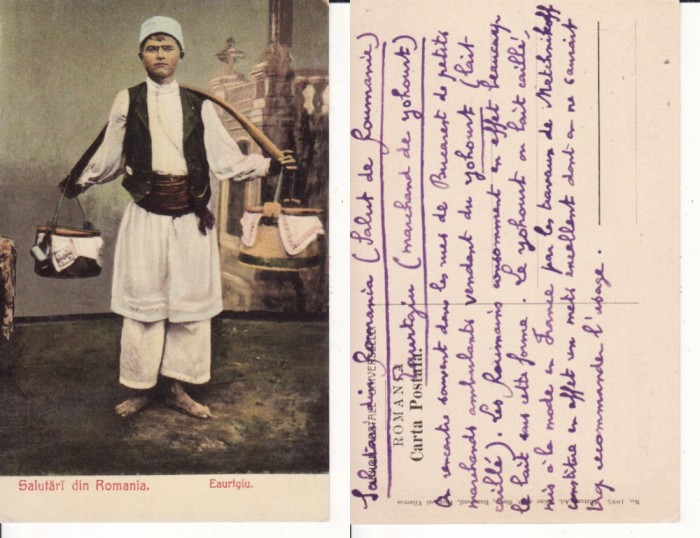 Salutări din Romania.
Eaurtgiu.
Salutari din Romania (Salut de Roumanie)
Iaurtgiu (marchand de yohourt)
On rencontre souvent dans les rues de Bucarest de petits
marchands ambulants vendant du yohourt (lait
caillé). Les Roumains consomment en effet beaucoup
le lait sous cette forme. Le yohourt ou lait caillé,
mis à la mode en France par les travaux de Metchnikoff
constitue en effet un mets excellent dont on ne saurait
trop recommander l'usage.
UNIVERSALE
ROMANIA
Carta Postala.